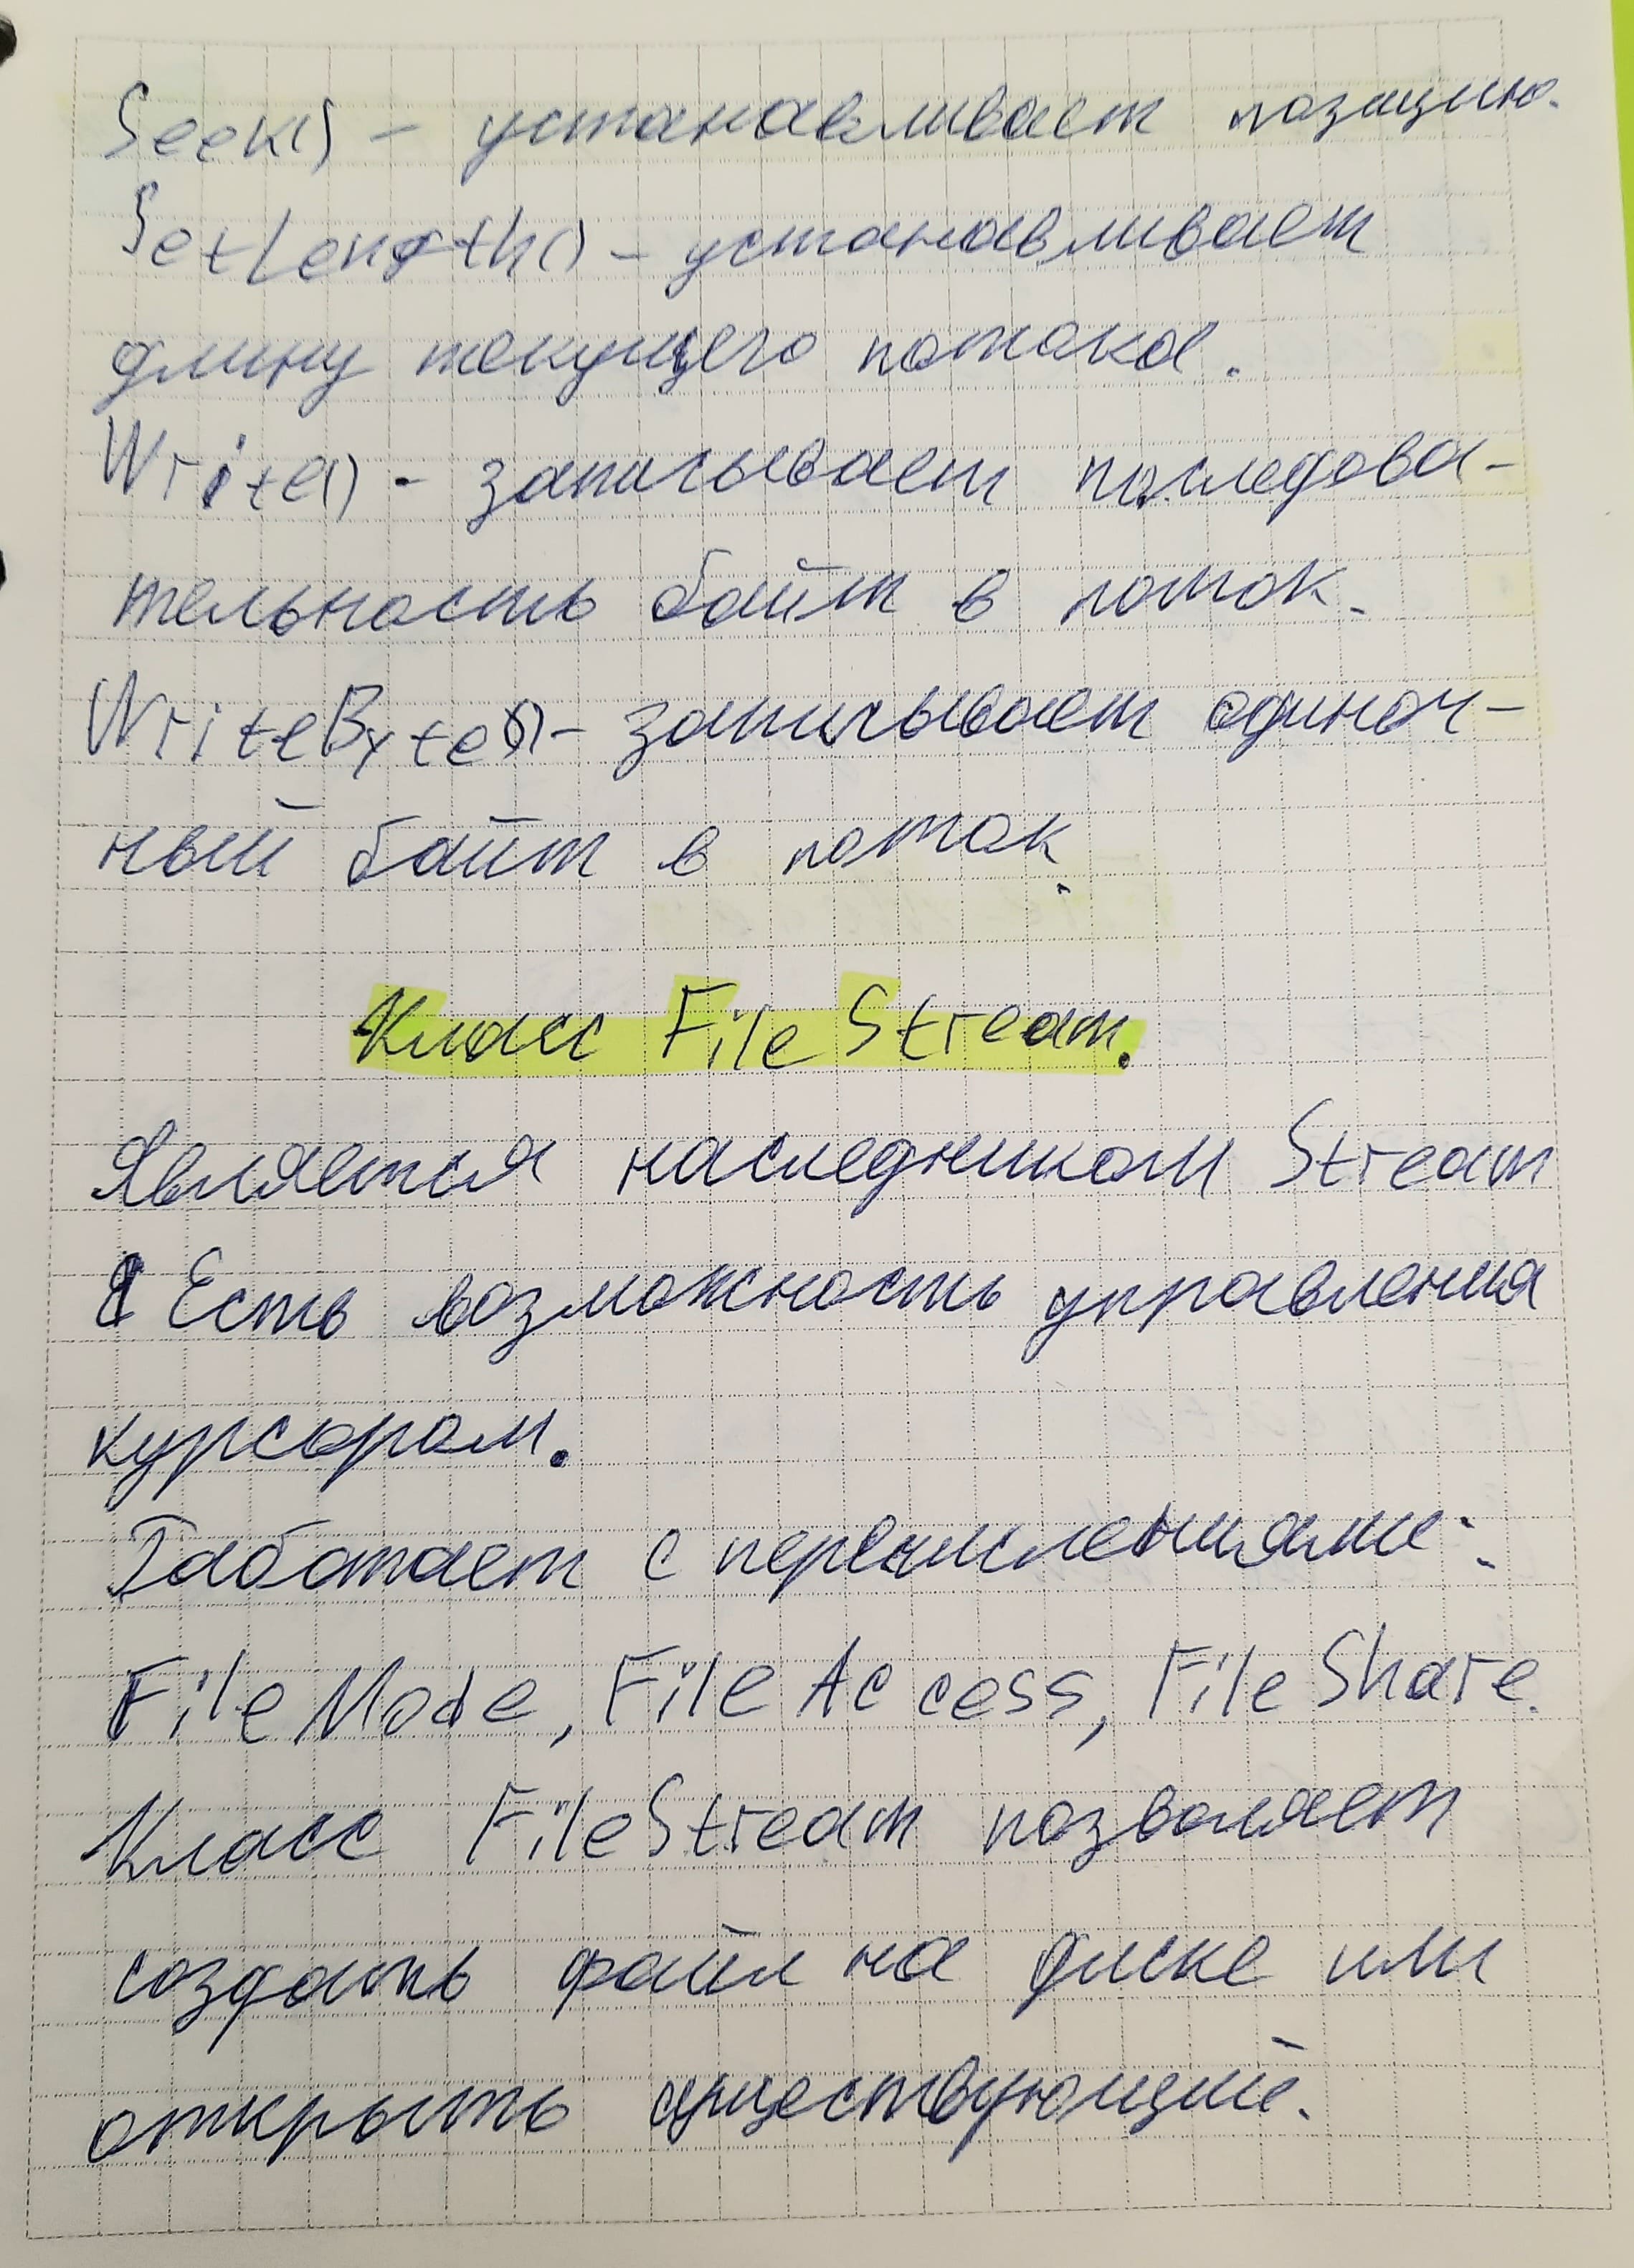 Seek() - устанавливает позицию.
SetLength() - устанавливает
длину текущего потока.
Write() - записывает последова-
тельность байт в поток.
WriteByte() - записывает одиноч-
ный байт в поток.
Класс FileStream.
Является наследником Stream
Есть возможность управления
курсором.
Работает с перечислениями:
FileMode, FileAccess, FileShare.
Класс FileStream позволяет
создать файл на диске или
открыть существующий.